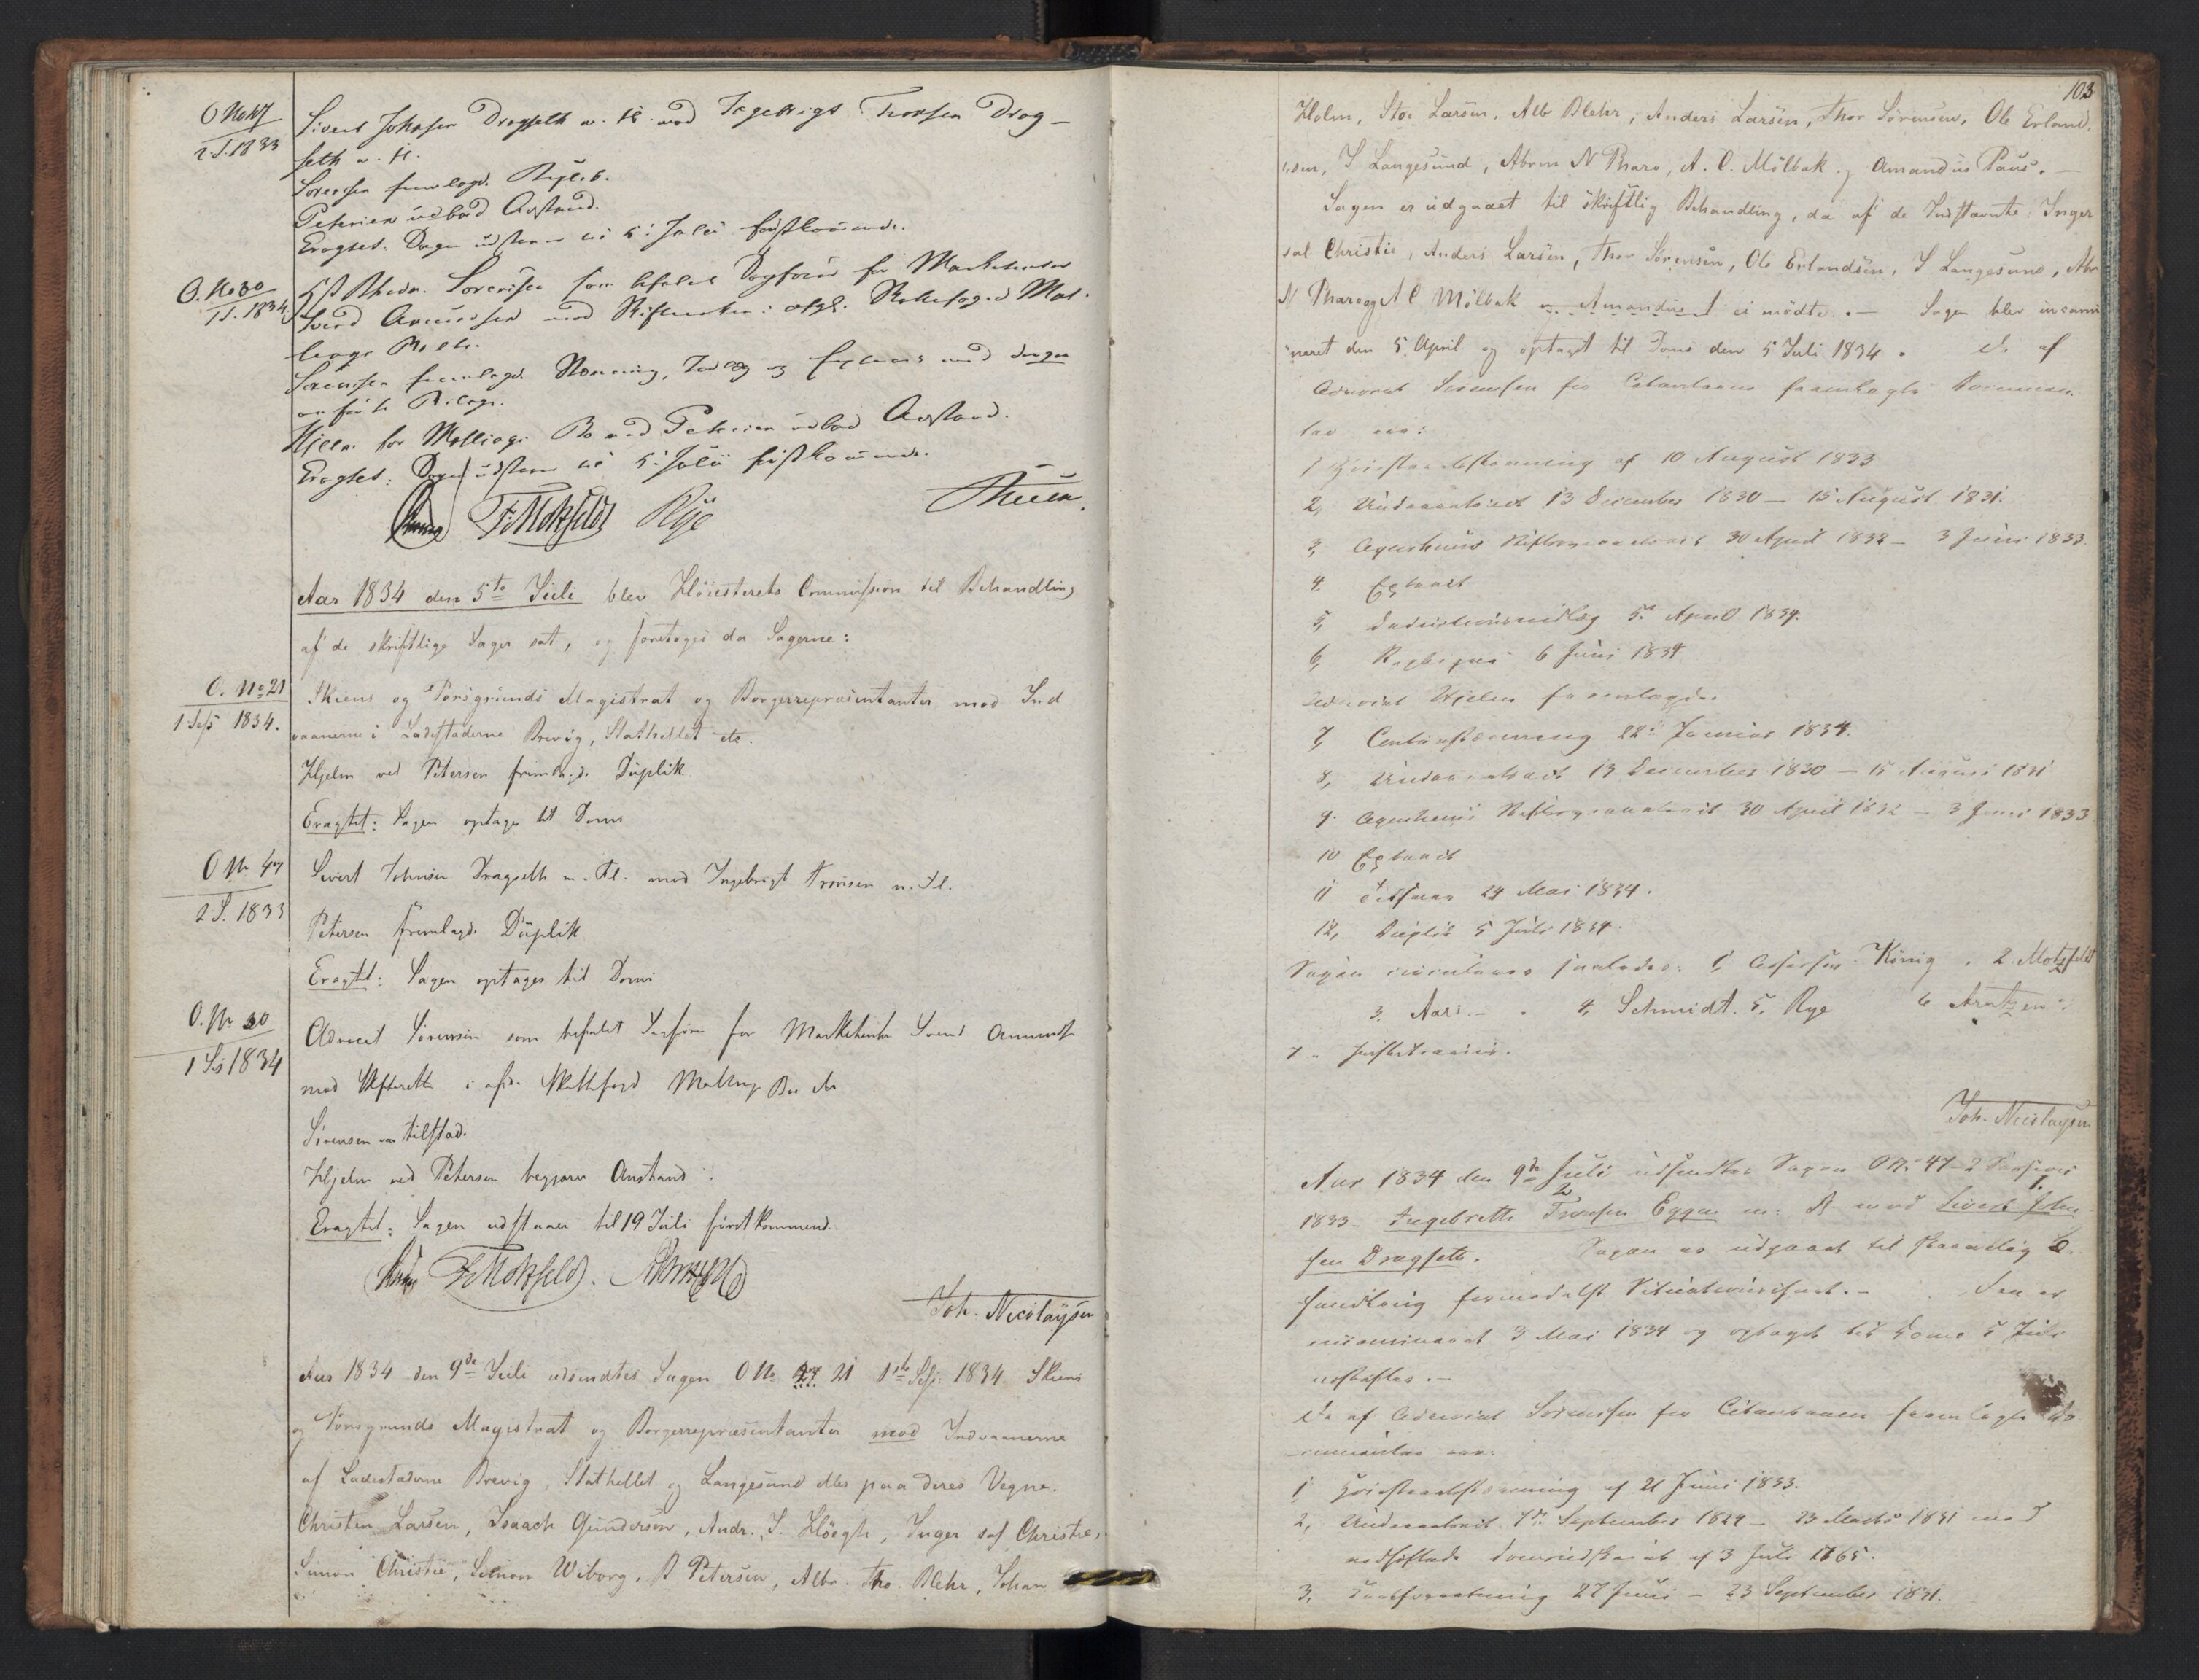 O No 47
2 S. 1833
Sivert Johnsen Dragseth m. fl. mod Ingebrigt Tronsen Drag-
seth m. fl.
Sorensen fremlagde Replik.
Petersen udbad Anstand.
Eragtet: Sagen udstaaer til 5te Juli førstkommende.
O. No 30
1 S. 1834
Adv. Sorensen som befalet Sagfører for Marketenter
Svend Amundsen mod Skifteretten i afg.
Sorensen fremlagde Stævning, Indlæg og Extract med deri
anførte Bilage.
Hjelm for Boe ved Petersen udbad Anstand.
Eragtet: Sagen udstaaer til 5te Juli førstkommende.
F. Motzfeldt Rye
Aar 1834 den 5te Juli blev Höiesterets Commission til Behandling
af de skriftlige Sager sat, og foretoges da Sagerne:
O. No 21
1 Sess 1834.
Skiens og Porsgrunds Magistrat og Borgerrepræsentanter mod Ind
vaanerne i Ladestæderne Brevig, Stathellet etc.
Hjelm ved Petersen fremlagde Duplik
Eragtet: Sagen optages til Doms
O No 47
2 S. 1833
Sivert Johnsen Dragseth m. Fl. mod Ingebrigt Tronsen m. Fl.
Petersen fremlagde Duplik
Eragtet: Sagen optages til Doms
O. No 30
1 Ss 1834
Advocat Sörensen som befalet Sagfører for Marketenter Svend Amunds
mod Skifteretten i afdøde Boe
Sörensen var tilstæd.
Hjelm ved Petersen begjærer Anstand
Eragtet: Sagen udstaaer til 19 Juli førstkommend.
F. Motzfeldt.
Joh. Nicolaysen
Aar 1834 den 9de Juli udsendtes Sagen O No 47 21 1ste Sess: 1834. Skiens
og Porsgrunds Magistrat og Borgerrepræsentanter mod Indvaanerne
af Ladestæderne Brevig, Stathellet og Langesund eller paa deres Vegne.
Christen Larsen, Isaach Gundersen, Andr. J. Höegh, Inger sal Christie,
Simon Christie, Simon Wiborg, P Petersen, Albr. Tho. Blehr, Johan
103
Holm, Stor Larsen, Alb Blehr, Anders Larsen, Thor Sörensen, Ole Erland
sen, J Langesund, Abrm N Tharo, A. C. Mölbak og Amandus Paus. —
Sagen er udgaaet til skriftlig Behandling, da af de Indstævnte: Inger
sal Christie, Anders Larsen, Thor Sörensen, Ole Erlandsen, J Langesund, Abr
N Tharo og A C Mölbak og Amandus ei mödte. — Sagen blev incami
neret den 5 April og optaget til Doms den 5 Juli 1834. De af
Advocat Sörensen for Citanterne fremlagte Documen
ter ere:
1 Höiesteretsstævning af 10 August 1833
2, Underretsact 13 December 1830 — 15 August 1831.
3, Agershuus Stiftsoverretsact 30 April 1832 — 3 Juni 1833
4 Extract
5, Deductionsindlæg 5te April 1834.
6, Replique 6 Juni 1834
Advocat Hjelm fremlagde.
7, Contrastævning 22de Januar 1834.
8, Underretsact 13 December 1830 — 15 August 1831
9. Agershuus Stiftsoverretsact 30 April 1832 — 3 Juni 1833
10 Extract
11 Tilsvar 24 Mai 1834.
12, Duplik 5 Juli 1834.
Sagen circulerer saaledes: 1, Assessor König, 2. Motzfeldt
3. Aars. — 4, Schmidt. 5, Rye 6 Arntzen
7 „ Justitiarius.
Joh. Nicolaysen
Aar 1834 den 9de Juli udsendtes Sagen O No 47 2 Session
1833 — Ingebrigt Tronsen Eggen m. Fl. mod Sivert John
sen Dragseth. Sagen er udgaaet til skriftlig Be
handling formedelst Situationscharter. — Den er
incamineret 3 Mai 1834 og optaget til Doms 5 Juli
De af Advocat Sörensen for Citanterne fremlagte Do
cumenter ere:
1 Höiesteretsstævning af 21 Juni 1833.
2, Underretsact 7de September 1829 — 23 Marts 1831 med
vedhæftede af 3 Juli 1765.
3, 27 Juni — 23 September 1831.